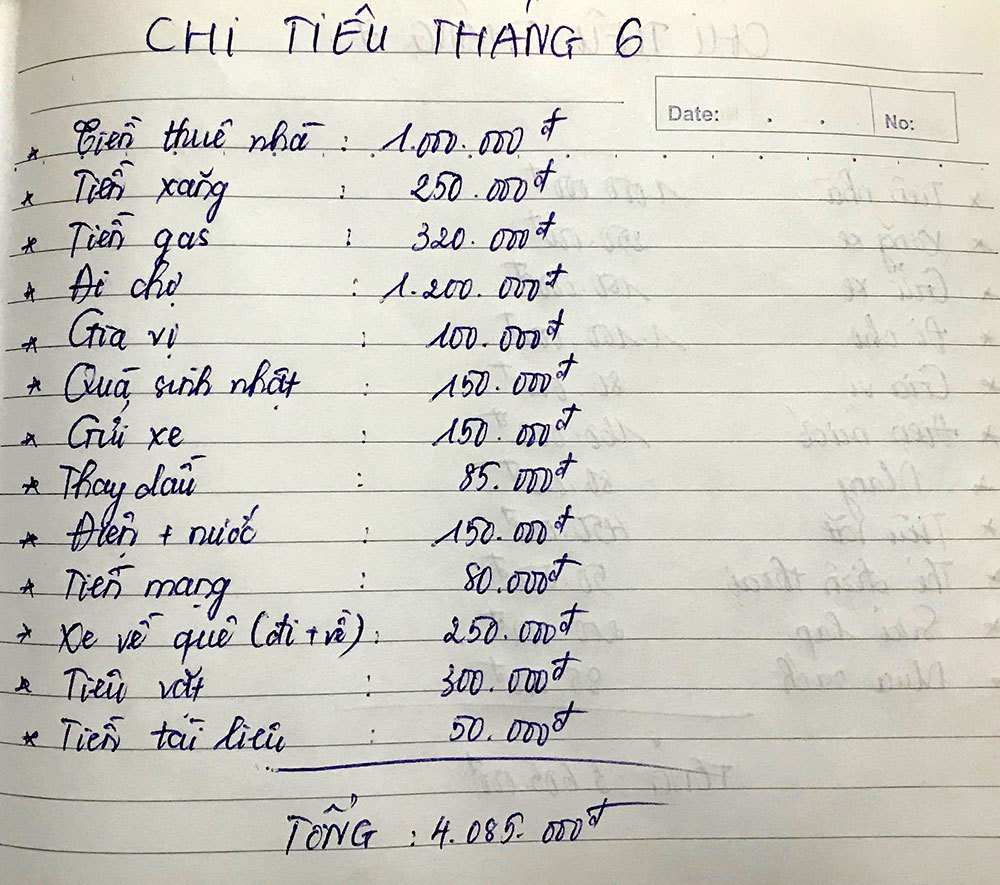 CHI TIÊU THÁNG 6
Date: . . No:
* Tiền thuê nhà : 1.000.000 đ
* Tiền xăng : 250.000đ
* Tiền gas : 320.000đ
* Đi chợ : 1.200.000đ
* Gia vị : 100.000đ
* Quà sinh nhật : 150.000đ
* Gửi xe : 150.000đ
* Thay dầu : 85.000đ
* Điện + nước : 150.000đ
* Tiền mạng : 80.000đ
* Xe về quê (đi + về) : 250.000đ
* Tiêu vặt : 300.000đ
* Tiền tài liệu : 50.000đ
TỔNG : 4.085.000đ